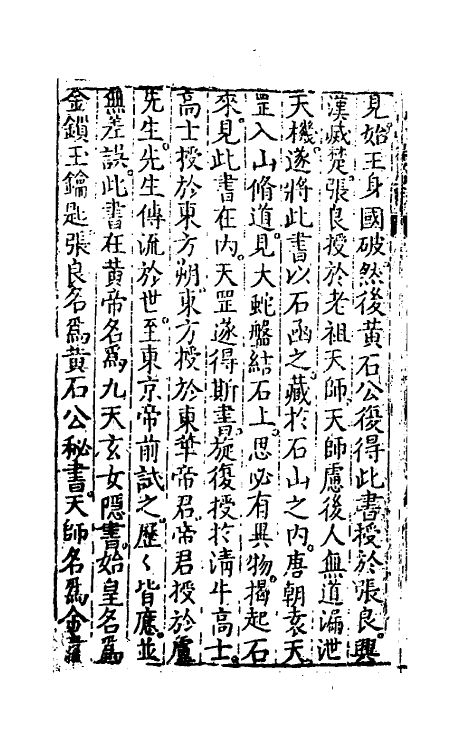 見。始王身國破然後黄石公復得此書授於張良。興
漢滅楚。張良授於老祖天師。天師慮後人無道漏泄
天機。遂將此書以石函之。藏於石山之内。唐朝袁天
罡入山脩道。見大蛇盤結石上。思必有異物。揭起石
來。見此書在内。天罡遂得斯書。旋復授於清牛高士。
高士授於東方朔。東方授於東華帝君。帝君授於盧
先生。先生傳流於世。至東京帝前試之。歷〻皆應。並
無差誤。此書在黄帝名為九天玄女隱書。始皇名爲
金鎖玉鑰匙張良名爲黄石公秘書。天師名爲金